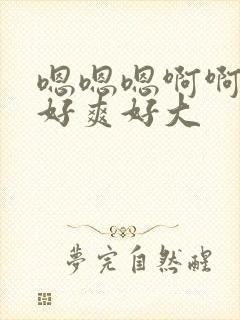 嗯嗯嗯啊啊
好爽好大
夢完自然醒